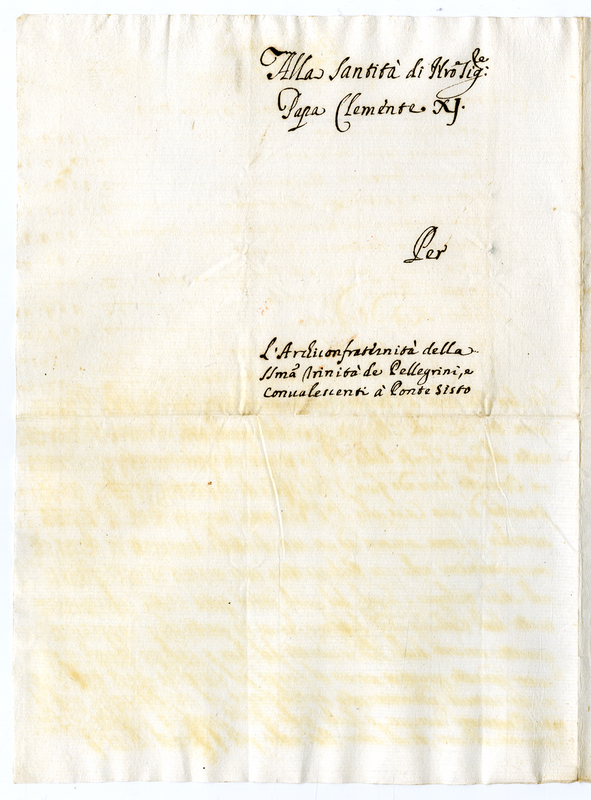 Alla Santità di Nro Sig:re
Papa Clemente XJ.
Per
L'Archiconfraternità della
SSma Trinità de Pellegrini, e
Conualescenti à Ponte Sisto